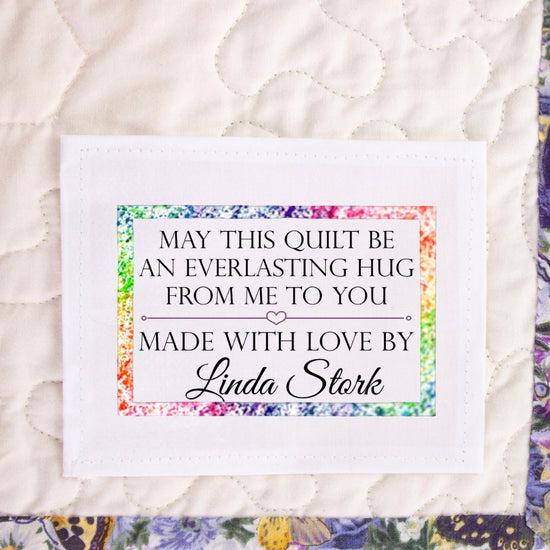 MAY THIS QUILT BE
AN EVERLASTING HUG
FROM ME TO YOU
MADE WITH LOVE BY
Linda Stork